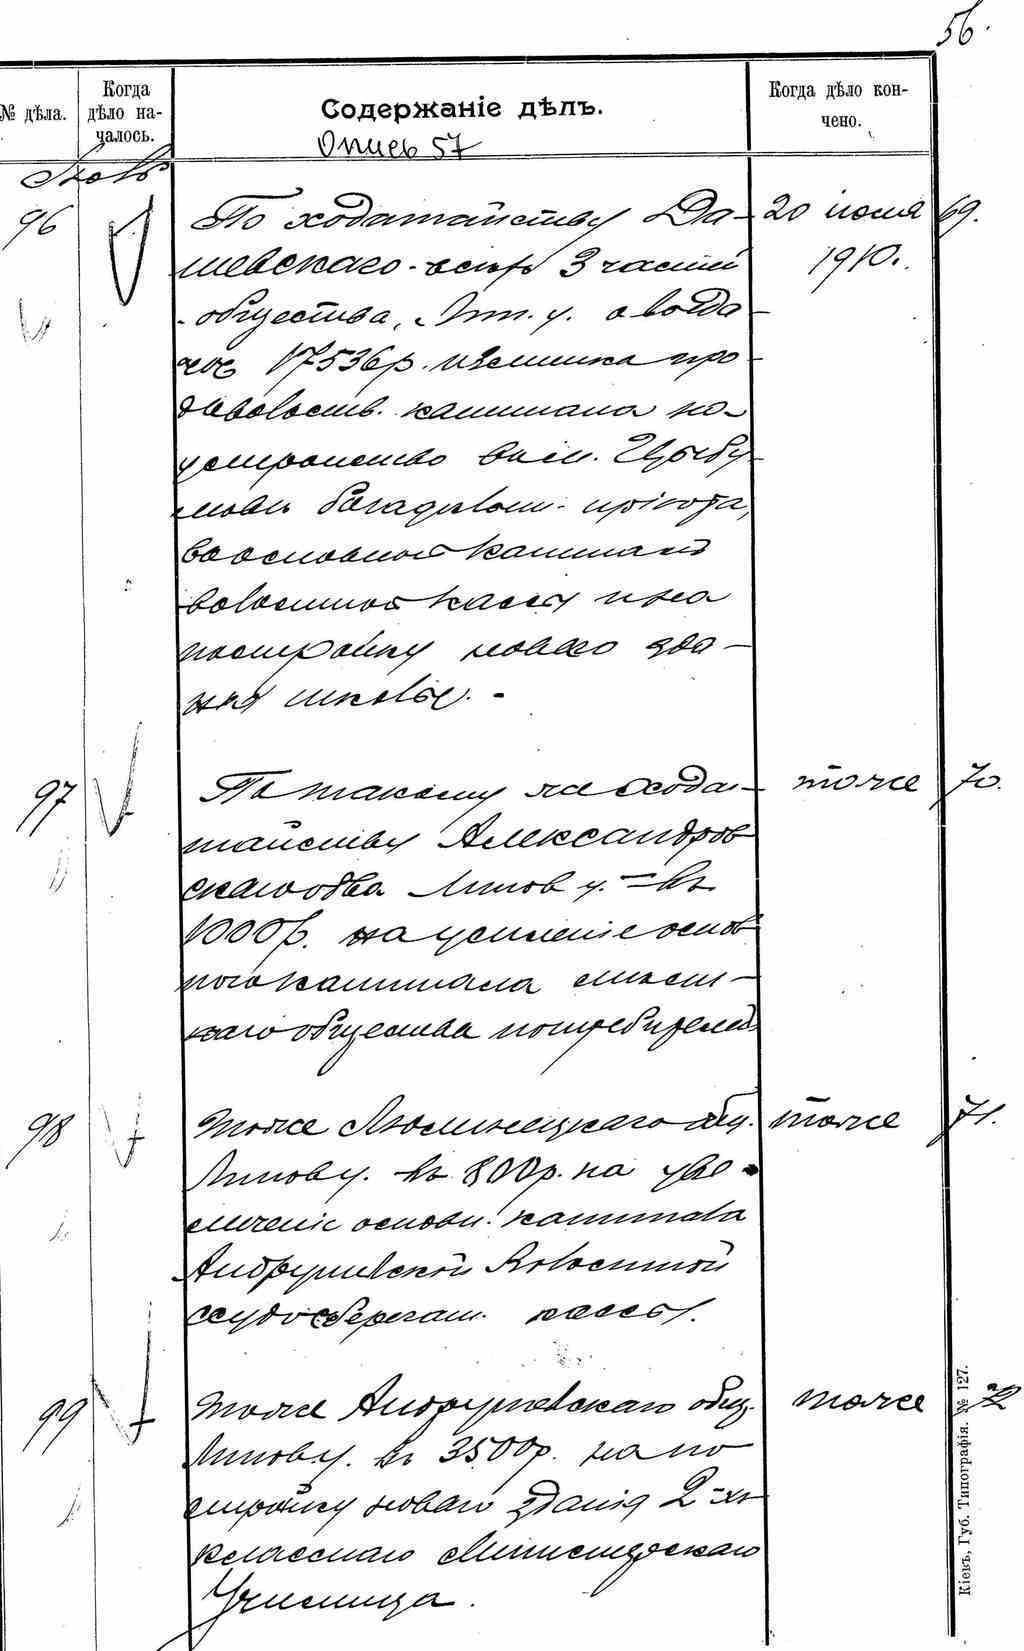 56.
№ дѣла.
Когда дѣло на-
чалось.
Содержаніе дѣлъ.
Когда дѣло кон-
чено.
Опись 57
96
По ходатайству Да-
шевскаго 3 части
общества, Лип. у. о выда-
чѣ 17536р. излишка про-
довольств. капитала на
устройство въ м. Цыбу-
левѣ богадѣльн. пріюта,
въ основной капиталъ
волостной кассы и на
постройку новаго зда-
нія школы.
20 іюля
1910.
69.
97
По такому же хода-
тайству Александров
скаго о-ва Липов у. въ
1000р. на усиленіе основ
ного капитала мѣст-
наго общества потребителей
тоже
70.
98
тоже Люлинецкаго общ.
Липов у. въ 800р. на уве-
личеніе основн. капитала
Андрушевской Волостной
ссудосберегат. кассы.
тоже
71.
99
тоже Андрушевскаго общ.
Липов у. въ 3500р. на по
стройку новаго зданія 2-хъ
класснаго Министерскаго
Училища.
тоже
72
Кіевъ, Губ. Типографія. № 127.